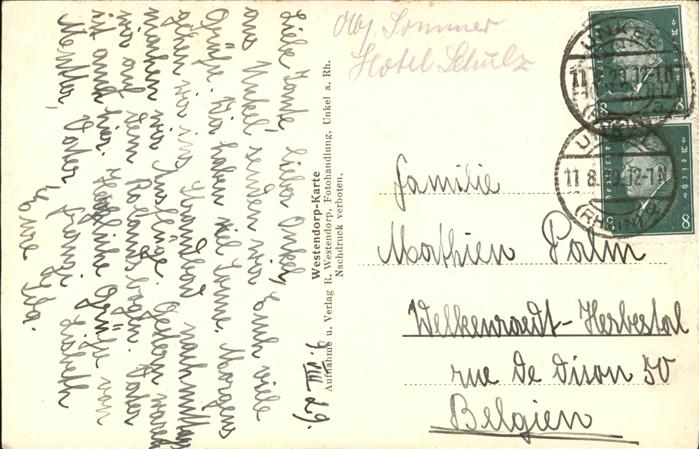 9. VIII. 29.
Liebe Tante, lieber Onkel, Euch viele
aus Unkel senden wir
Grüße. Wir haben viel Sonne. Morgens
gehen wir ins Strandbad nachmittags
machen wir Ausflüge. Gestern waren
wir auf dem Rolandsbogen. Vater
ist auch hier. Herzliche Grüße von
Mutter, Vater, Lisbeth
Eure
Westendorp-Karte
Aufnahme u. Verlag R. Westendorp, Fotohandlung, Unkel a. Rh.
Nachdruck verboten.
Abs. Sommer
Hotel Schulz
UNKEL
11.8.29.12-1N
UNKEL
11.8.29.12-1N
(RHEIN)
8
8
Familie
Mathieu Palm
Welkenraedt-Herbestal
rue de Dison 50
Belgien